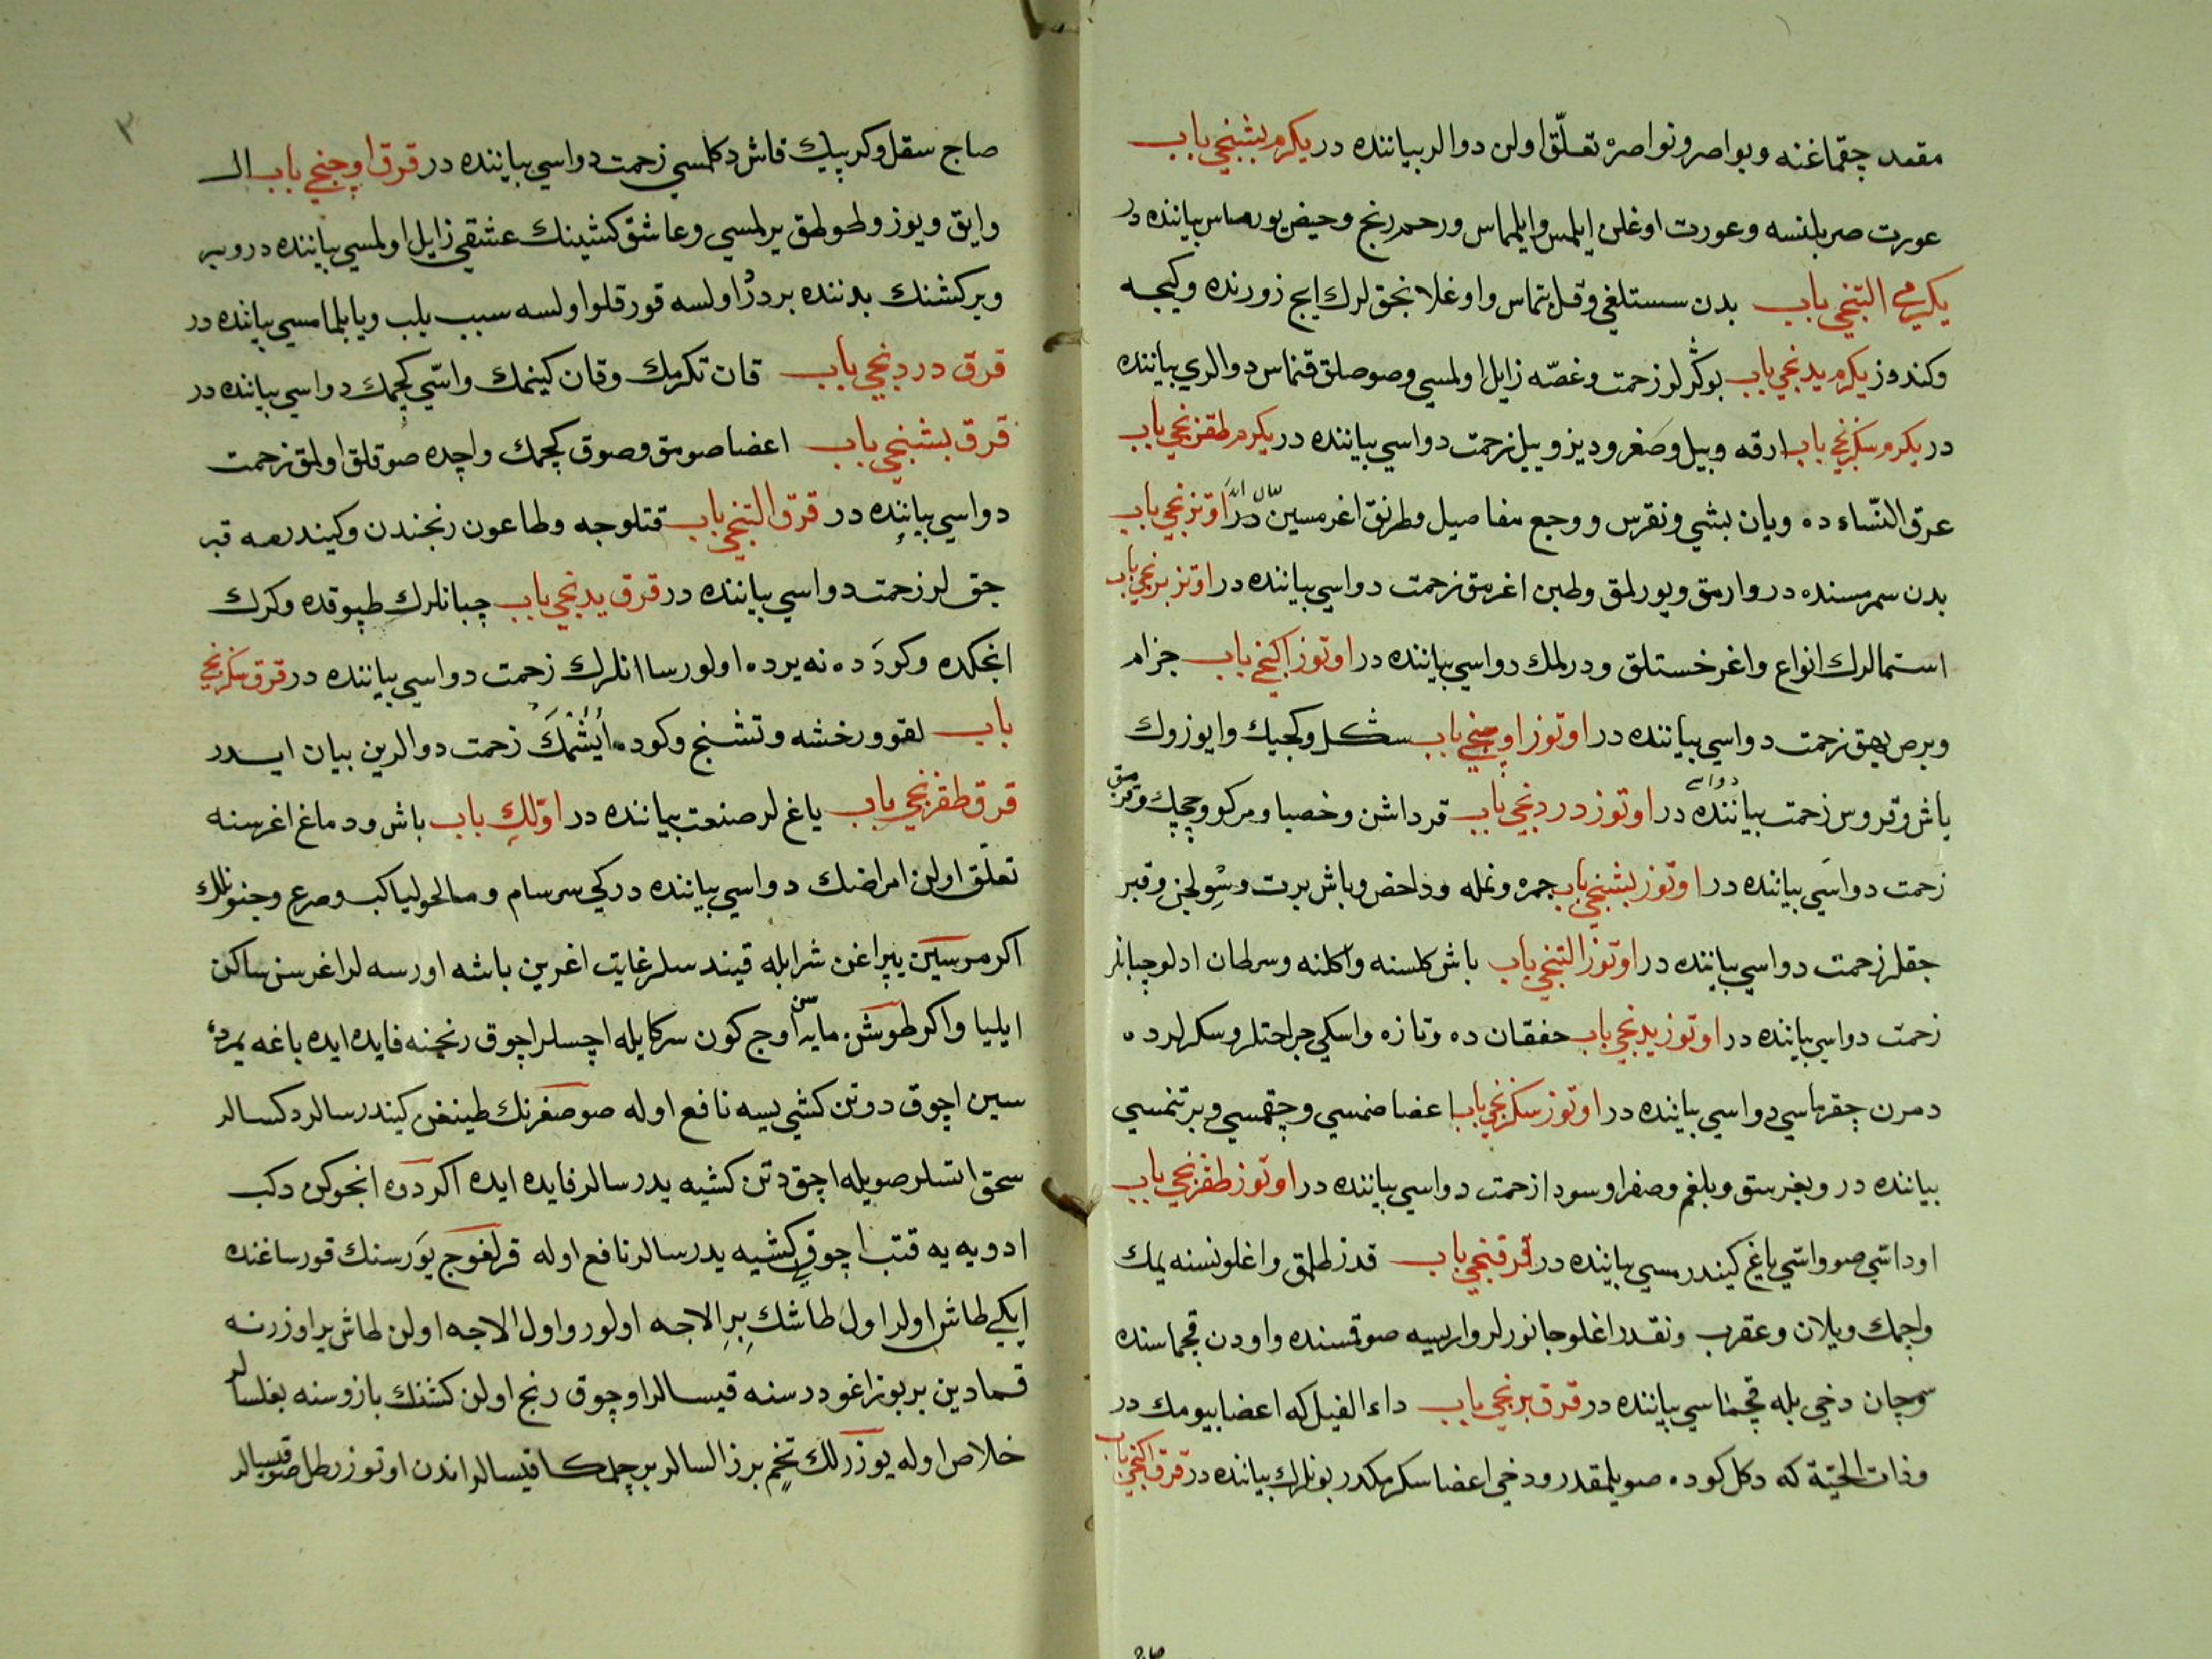 مقعد چقماغنه وبواصر ونواصره تعلّق اولن دوالر بياننده در يكرم بشنجي باب
عورت صربلنسه وعورت اوغلن ايلمس وايلماس ورحم رنج وحيض يورماس بياننده در
يكرمي التنجي باب بدن سستلغي وقل تماس واوغلانجق لرك ايچ زورنده وكيجه
وكندوز يكرم يدنجي باب بوكرلو زحمت وغصّه زايل اولمسي وصوصلق قنماس دوالري بياننده
در يكرم سكزنجي باب ارقه وبيل وصغر وديز وبيل زحمت دواسي بياننده در يكرم طقزنجي باب
عرق النّساء ده ويان بشي ونقرس ووجع مفاصيل وطرنق اغرمسين بيان ادر اوتزنجي باب
بدن سمرمسنده در وارمق ويورلمق وطبن اغرمق زحمت دواسي بياننده در اوتز برنجي باب
استمالرك انواع واغر خستلق ودرلمك دواسي بياننده در اوتوز اكنجي باب جزام
وبرص بهق زحمت دواسي بياننده در اوتوز اوچنجي باب سكل وكجيك وايوزوك
ياش وقروس زحمت دواسي بياننده در اوتوز دردنجي باب قرداشن وخصبا ومركو وچچك وقزمق
زحمت دواسي بياننده در اوتوز بشنجي باب جمره ونمله وداحض وباش برت وسولجن وقبر
جقلر زحمت دواسي بياننده در اوتوز التنجي باب باش كلسنه واكلنه وسرطان ادلو چبانلر
زحمت دواسي بياننده در اوتوز يدنجي باب حفقان ده وتازه واسكي جراحتلر وسكرلرده
دمرن چقرماسي دواسي بياننده در اوتوز سكزنجي باب اعضا ضمسي وچقمسي وبرتنمسي
بياننده در وبغرستق وبلغم وصفرا وسودا زحمت دواسي بياننده در اوتوز طقزنجي باب
اود اسّي صو واسّي ياغ كيندرمسي بياننده در قرقنجي باب قدز طلمق واغلو نسنه يمك
واچمك ويلان وعقرب ونقدر اغلو جانورلر واريسه صوقسنده واودن قچماسنده
سوچان دخي بله قچمناسي بياننده در قرق برنجي باب داء الفيل كه اعضا بيومك در
وذات الحيّة كه دكل كوده صويلمقدر ودخي اعضا سكرمكدر بونلرك بياننده در قرق اكنجي باب
صاج سقل وكرپيك قاش دكلمسي زحمت دواسي بياننده در قرق اوچنجي باب ال
وايق ويوز وطوطق يرلمسي وعاشق كشينك عشقي زايل اولمسي بياننده در وبير
وبر كشنك بدننده بر درد اولسه قورقلو اولسه سبب يلب ويا بلمامسي بياننده در
قرق دردنجي باب قان تكرمك وقان كينمك واسّي كچمك دواسي بياننده در
قرق بشنجي باب اعضا صومق وصوق كچمك واچده صوقلق اولمق زحمت
دواسي بياننده در قرق التنجي باب قتلوجه وطاعون رنجندن وكيندرمه قبر
جق لر زحمت دواسي بياننده در قرق يدنجي باب چبانلرك طپوقده وكرك
انجكده وكوده ده نه يرده اولورسا انلرك زحمت دواسي بياننده در قرق سكزنجي
باب لقوه ورخشه وتشنج وكوده ايشمك زحمت دوالرين بيان ايدر
قرق طقزنجي باب ياغ لر صنعت بياننده در اوّلك باب باش ودماغ اغرسنه
تعلّق اولن امراضك دواسي بياننده در كي سرسام ومالحوليا كب وصرع وجنونلك
اكر مرسين يپراغن شرابله قيندسلر غايت اغرين باشه اورسه لر اغرسن ساكن
ايليا واكر طوشن مايه سن اوج كون سركايله اچسلر اچوق رنجنه فايده ايده باغه يردء
سين اچوق دوتن كشي ييسه نافع اوله صوصغرنك طينغن كيندرسالر دكسالر
سحق اتسلر صويله اچق دتن كشيه يدرسالر فايده ايده اكر دوه انجوكن دكب
ادويه يه قتب اچوقلي كشيه يدرسالر نافع اوله قرلغوج يورسنك قورساغنده
ايكي طاش اولر اول طاشك بر الاجه اولور واول الاجه اولن طاش ير اوزرنه
قمادين بر بوزاغو درسنه قيسالر اوچوق رنج اولن كشنك بازوسنه بغلسالر
خلاص اوله يوزرلك تخم برز السالر بر چملكا قيسالر اندن اوتوز رطل صو قيسالر